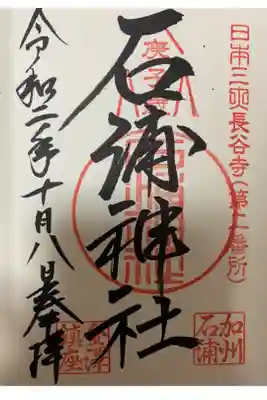 日本三処長谷寺(第二番所)
加州
石浦
庚子
石浦神社
金澤
鎮座
令和二年十月八日奉拝